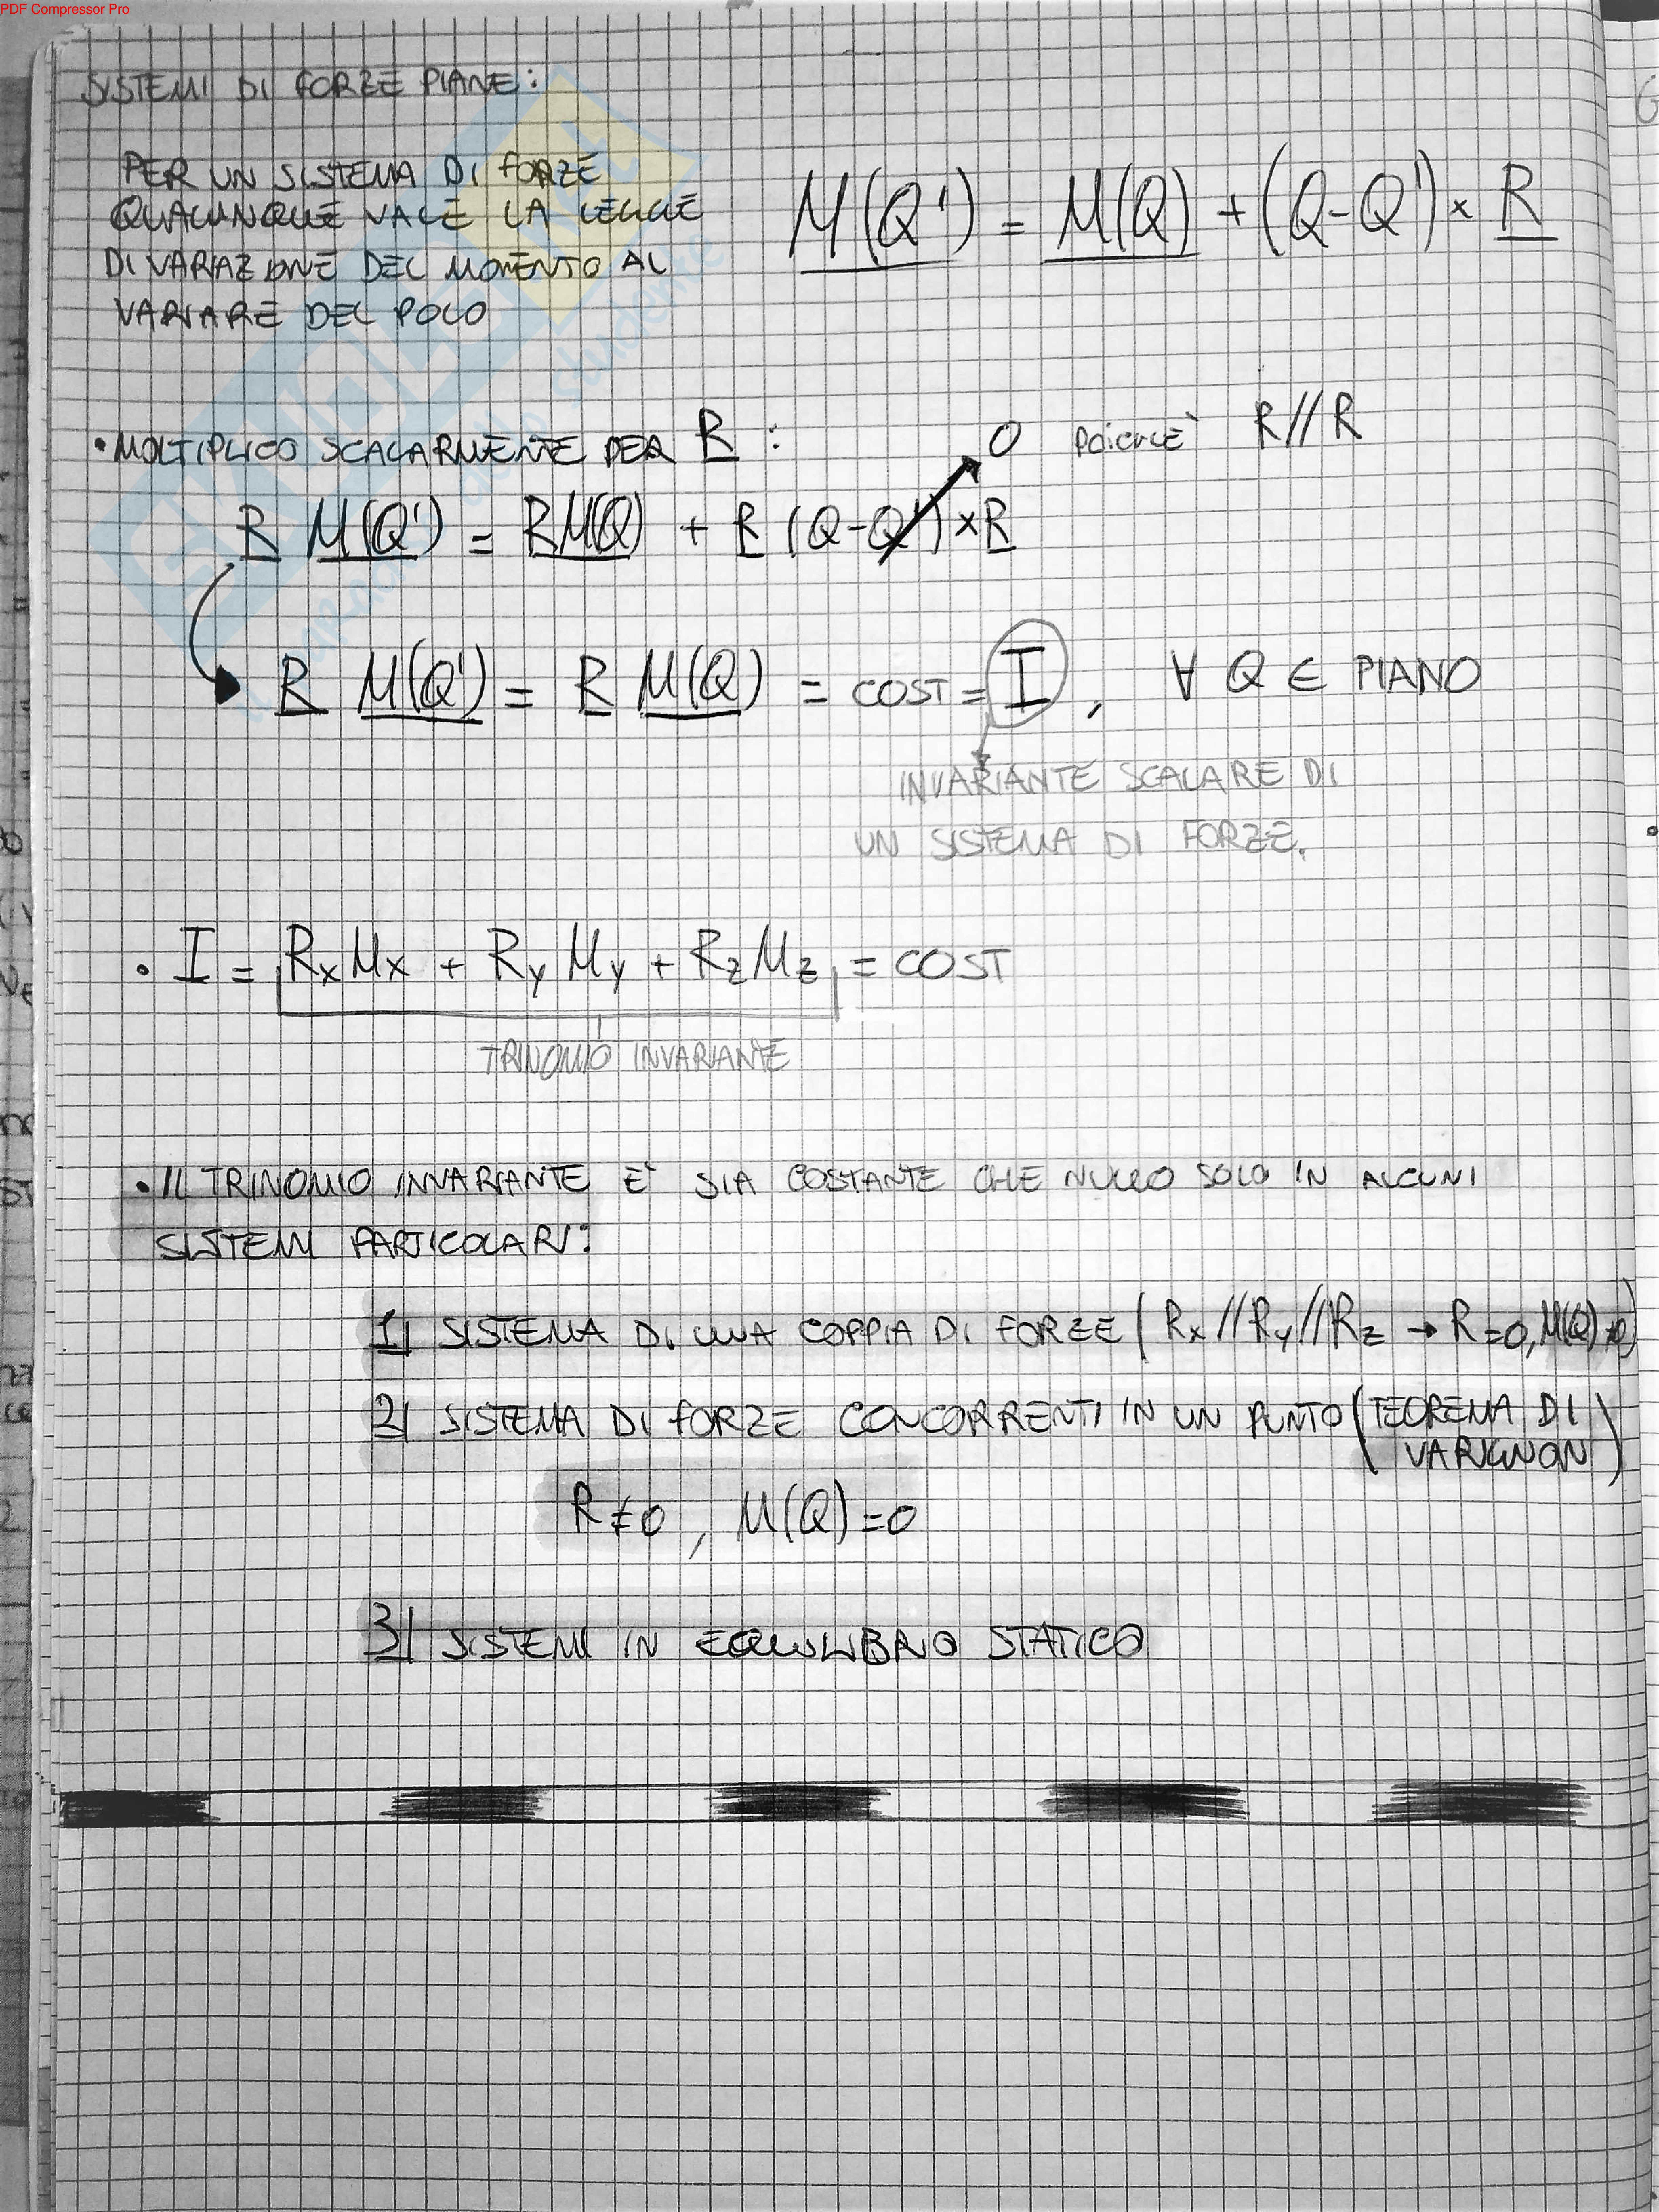 PDF Compressor Pro
SISTEMI DI FORZE PIANE:
PER UN SISTEMA DI FORZE
QUALUNQUE VALE LA LEGGE
DI VARIAZIONE DEL MOMENTO AL
VARIARE DEL POLO
M(Q') = M(Q) + (Q-Q') × R
• MOLTIPLICO SCALARMENTE PER R :
0 poichè R//R
R M(Q') = R M(Q) + R (Q-Q') × R
R M(Q') = R M(Q) = COST = I , ∀ Q ∈ PIANO
INVARIANTE SCALARE DI
UN SISTEMA DI FORZE.
• I = RxMx + RyMy + RzMz = COST
TRINOMIO INVARIANTE
• IL TRINOMIO INVARIANTE E' SIA COSTANTE CHE NULLO SOLO IN ALCUNI
SISTEMI PARTICOLARI:
1) SISTEMA DI UNA COPPIA DI FORZE ( Rx//Ry//Rz → R=0, M(Q)≠0)
2) SISTEMA DI FORZE CONCORRENTI IN UN PUNTO (TEOREMA DI
VARIGNON)
R≠0 , M(Q)=0
3) SISTEMI IN EQUILIBRIO STATICO